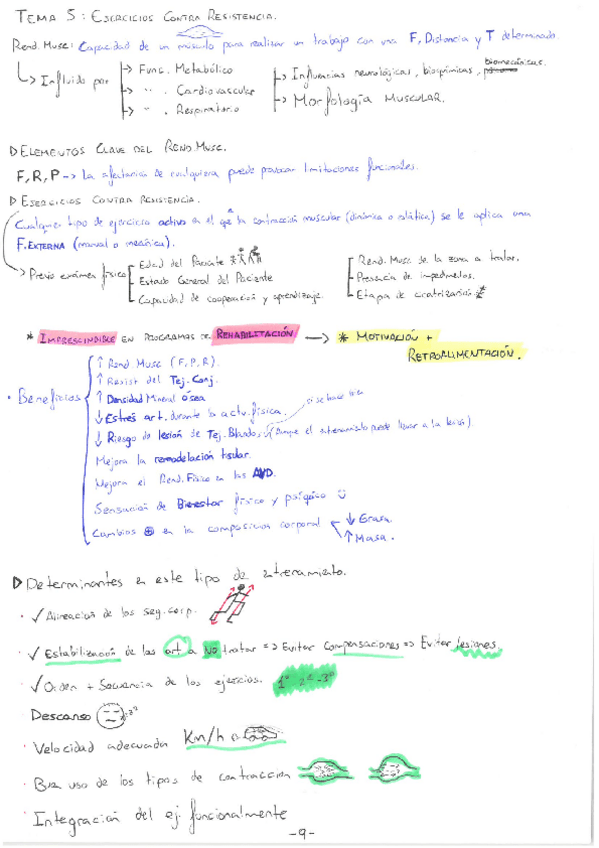 TEMA 5: EJERCICIOS CONTRA RESISTENCIA.
Rend. Musc: Capacidad de un músculo para realizar un trabajo con una F, Distancia y T determinado
Influido por
Func. Metabólico
" . Cardiovascular
" . Respiratorio
Influencias neurológicas, bioquímicas, biomecánicas.
Morfología MUSCULAR.
ELEMENTOS CLAVE DEL REND. MUSC.
F, R, P → La afectación de cualquiera puede provocar limitaciones funcionales.
EJERCICIOS CONTRA RESISTENCIA.
Cualquier tipo de ejercicio activo en el que la contracción muscular (dinámica o estática) se le aplica una
F. EXTERNA (manual o mecánica).
Previo exámen físico
Edad del Paciente
Estado General del Paciente
Capacidad de cooperación y aprendizaje.
Rend. Musc de la zona a tratar.
Presencia de impedimentos.
Etapa de cicatrización.
* IMPRESCINDIBLE EN PROGRAMAS DE REHABILITACIÓN → * MOTIVACIÓN +
RETROALIMENTACIÓN.
· Beneficios
↑ Rend Musc (F, P, R).
↑ Resist del Tej. Conj.
↑ Densidad Mineral ósea
↓ Estrés art. durante la activ. física.
↓ Riesgo de lesión de Tej. Blandos. (Aunque el entrenamiento puede llevar a la lesión).
si se hace
Mejora la remodelación tisular.
Mejora el Rend. Físico en las AVD.
Sensación de Bienestar físico y psíquico
Cambios ⊕ en la composición corporal
↓ Grasa.
↑ Masa.
Determinantes en este tipo de entrenamiento.
· ✓ Alineación de los seg. corp.
· ✓ Estabilización de las art a NO tratar => Evitar Compensaciones => Evitar lesiones
· ✓ Orden + Secuencia de los ejercicios. 1º 2º - 3º
· Descanso
· Velocidad adecuada Km/h
· Buen uso de los tipos de contracción
· Integración del ej. funcionalmente
-9-